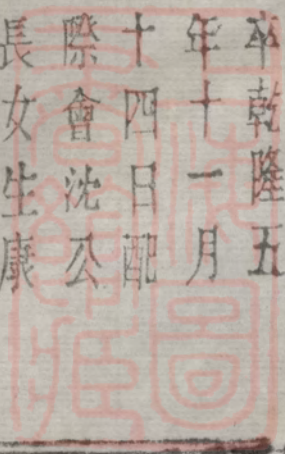 卒乾隆五
年十一月
十四日配
際會沈公
長女生康